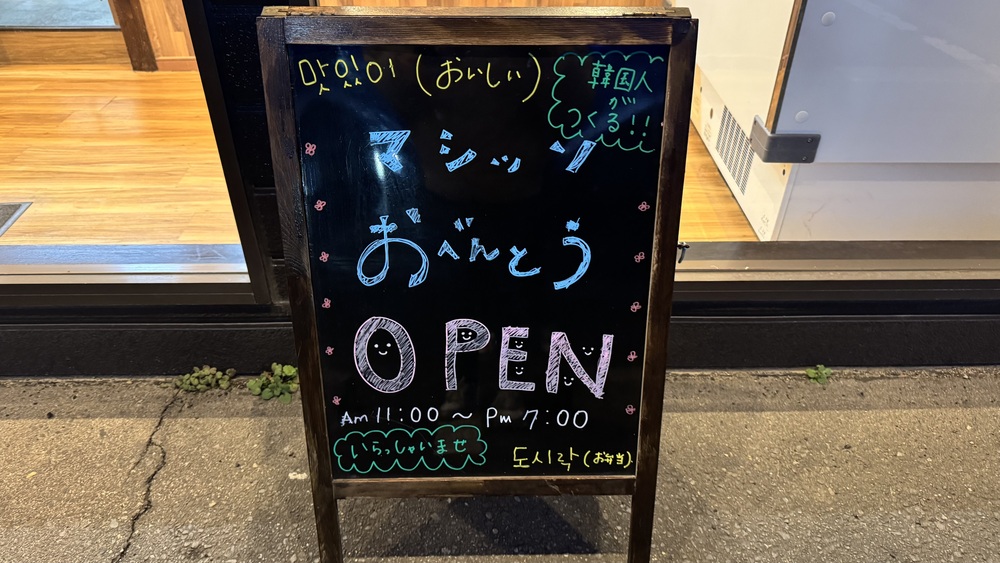 맛있어 (おいしい)
韓国人
が
つくる!!
マシッソ
おべんとう
OPEN
Am 11:00 ~ Pm 7:00
いらっしゃいませ
도시락 (お弁当)